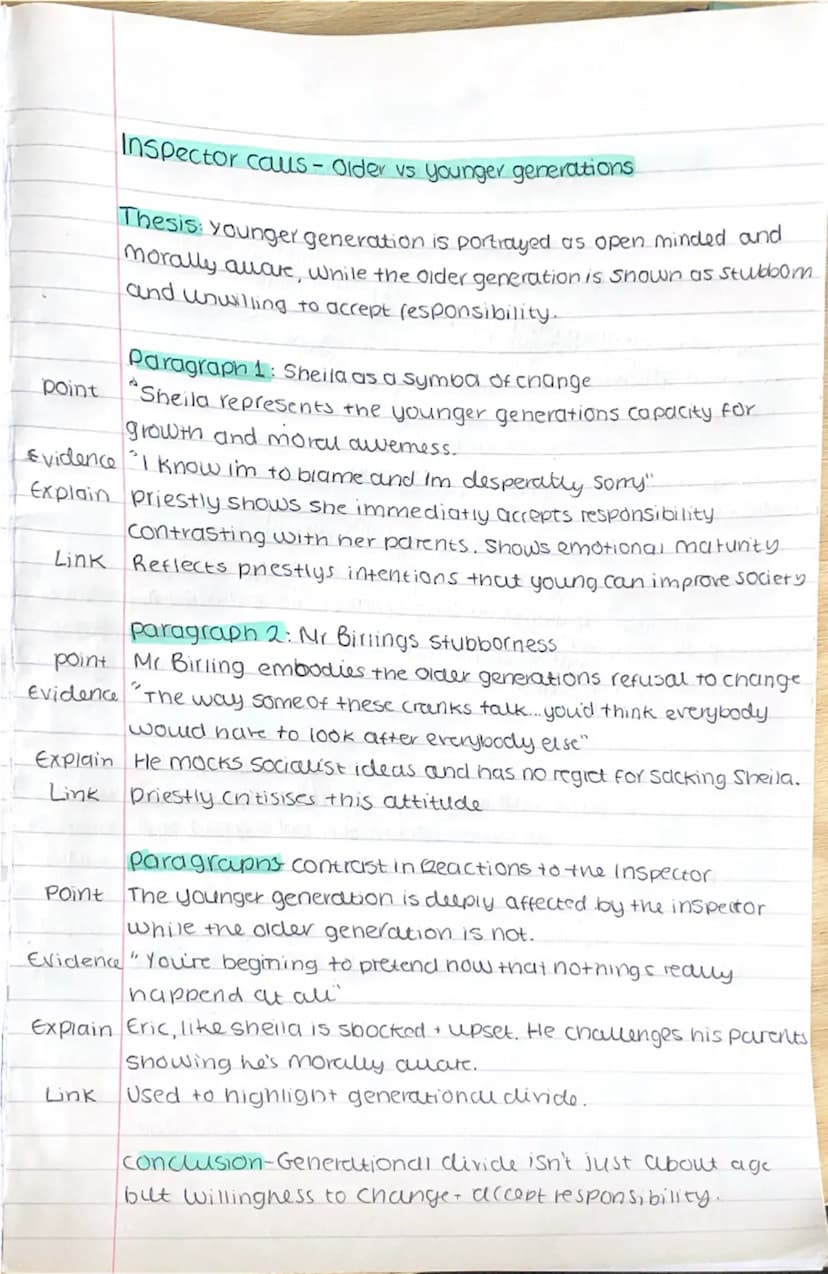 Inspector calls - Older vs younger generations
Thesis: younger generation is portrayed as open minded and
morally aware, while the older generation is shown as stubborn
and unwilling to accept responsibility.
Paragraph 1: Sheila as a symbol of change
point "Sheila represents the younger generations capacity for
growth and moral awerness.
Evidence "I know im to blame and Im desperatly sorry"
Explain priestly shows she immediatly accepts responsibility
contrasting with her parents. Shows emotional maturity
Link Reflects priestlys intentions that young can improve society
paragraph 2: Mr Birlings stubborness
point Mr Birling embodies the older generations refusal to change
Evidence "The way some of these cranks talk...you'd think everybody
would have to look after everybody else"
Explain He mocks socialist ideas and has no regret for sacking Sheila.
Link priestly critisises this attitude
paragraph 3 contrast in Reactions to the Inspector
Point The younger generation is deeply affected by the inspector
while the older generation is not.
Evidence "You're begining to pretend now that nothings really
happend at all"
Explain Eric, like sheila is shocked + upset. He challenges his parents
showing he's morally aware.
Link Used to highlight generational divide.
conclusion-Generational divide isn't just about age
but willingness to change + accept responsibility.